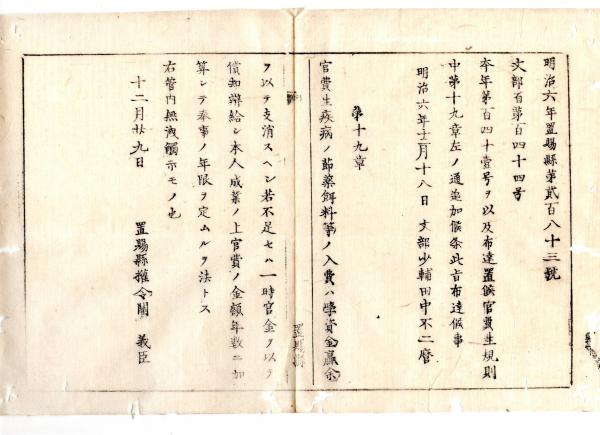 明治六年置賜縣第貳百八十三號
文部省第百四十四号
本年第百四十壹号ヲ以及布達置候官費生規則
中第十九章左ノ通追加候条此旨布達候事
明治六年十二月十八日 文部少輔田中不二麿
第十九章
官費生疾病ノ節薬餌料等ノ入費ハ學資金贏余
ヲ以テ支消スヘシ若不足セハ一時官金ヲ以テ
償却辨給シ本人成業ノ上官費ノ金額年数ニ加
算シテ奉事ノ年限ヲ定ムルヲ法トス
右管内無洩觸示モノ也
十二月廿九日
置賜縣權令關 義臣
置賜縣